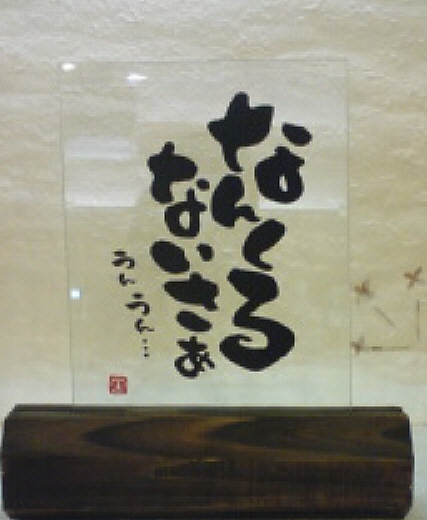 なんくる
ないさぁ
うんうん…